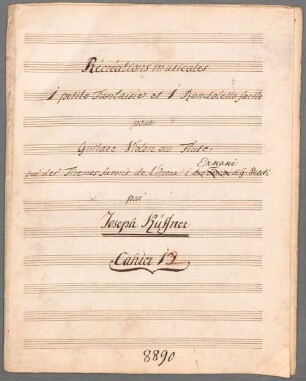 Récréations musicales
1 petite Fantaisie et 1 Rondoletto facile
pour
Guitare Violon ou Flute
Ernani
sur des Themes favoris de l'Opera: di G. Verdi
par
Joseph Küffner
Cahier 12
8890